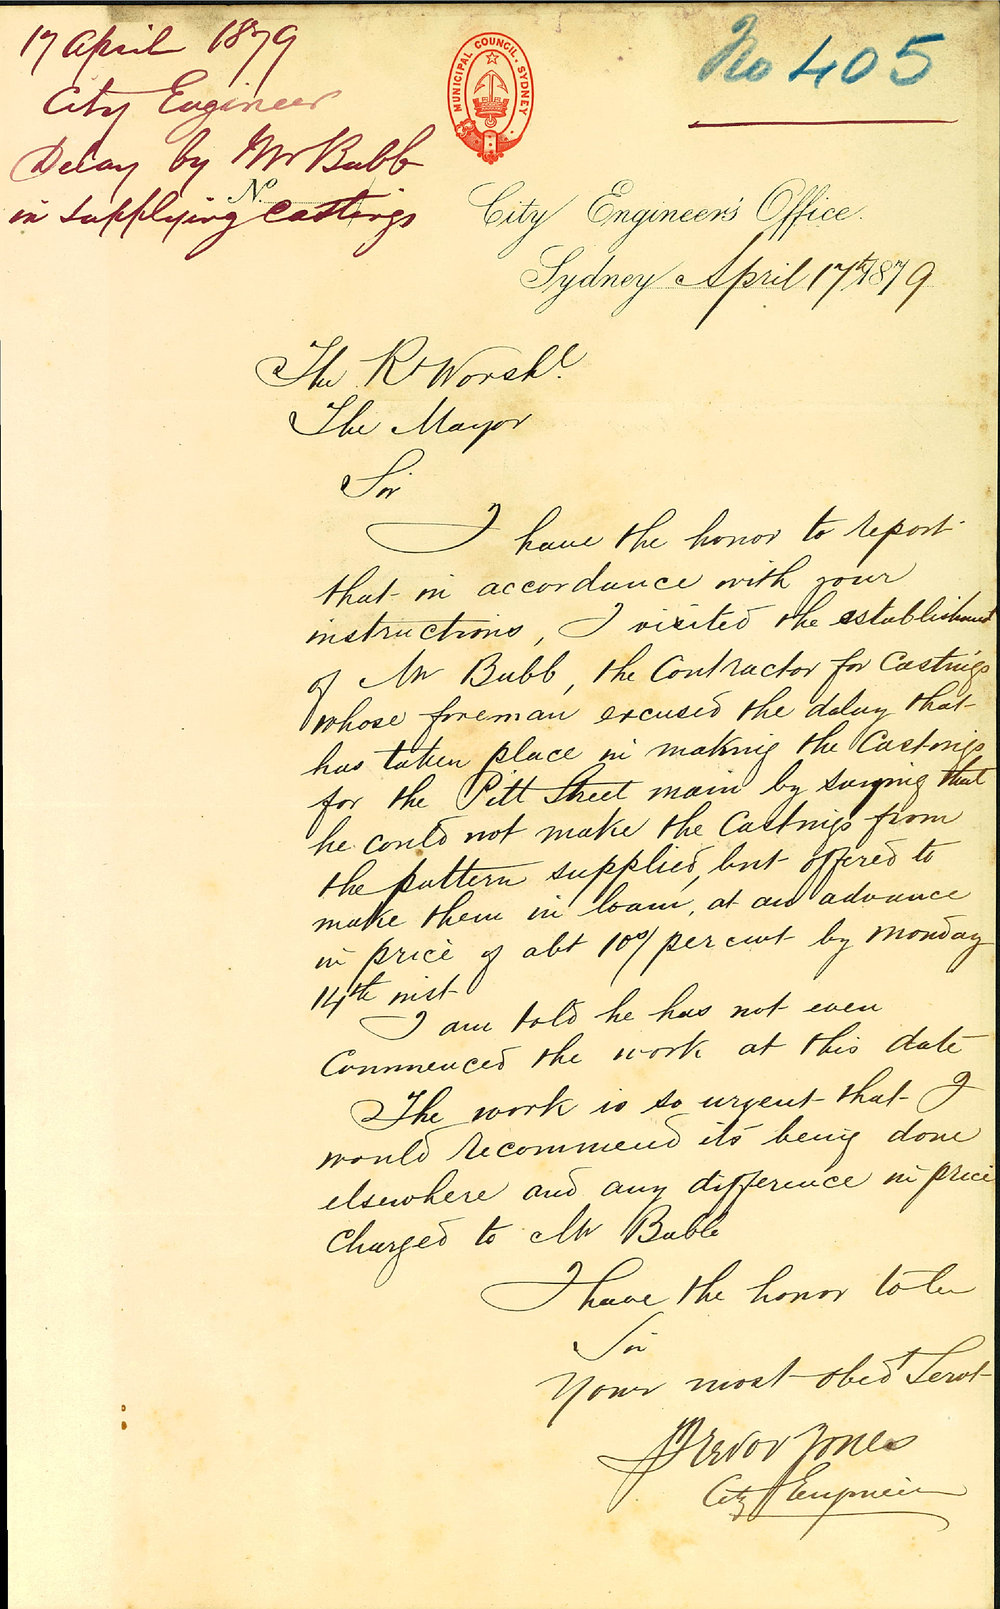 17 April 1879
City Engineer
Delay by Mr Bubb
in supplying Castings
No
MUNICIPAL COUNCIL. SYDNEY
No 405
City Engineer's Office.
Sydney April 17th 1879
The Rt Worshl.
The Mayor
Sir
I have the honor to report
that in accordance with your
instructions, I visited the establishment
of Mr Bubb, the Contractor for Castings
whose foreman excused the delay that
has taken place in making the Castings
for the Pitt Street main by saying that
he could not make the Castings from
the pattern supplied, but offered to
make them in loam, at an advance
in price of abt 10% per cent by Monday
14th inst
I am told he has not even
Commenced the work at this date
The work is so urgent that I
would recommend its being done
elsewhere and any difference in price
Charged to Mr Bubb
I have the honor to be
Sir
Your most obedt Servt
Trevor Jones
City Engineer